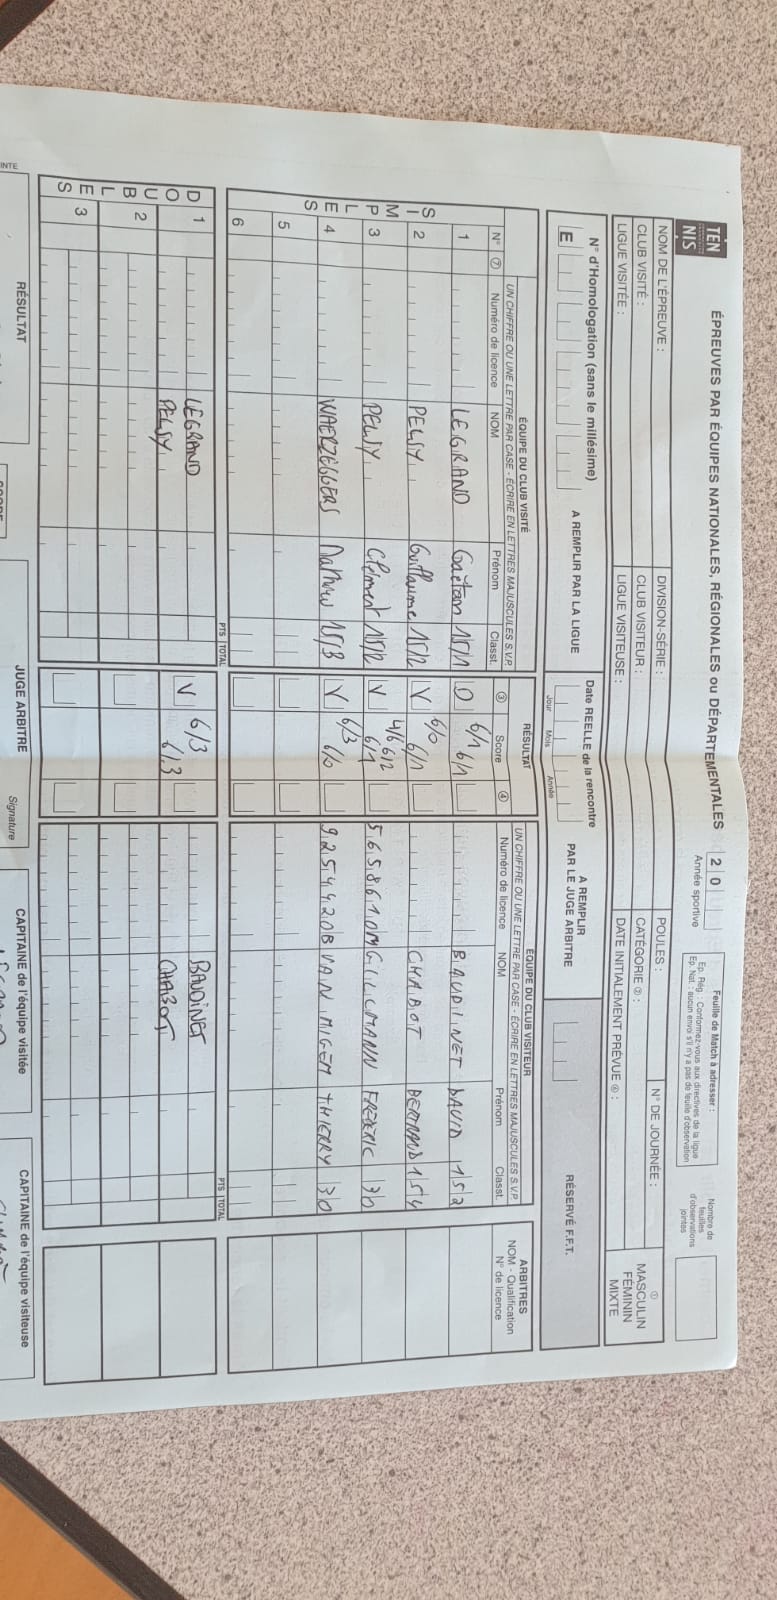 TEN
NIS
ÉPREUVES PAR ÉQUIPES NATIONALES, RÉGIONALES ou DÉPARTEMENTALES
2 0
Année sportive
Feuille de Match à adresser :
Ep. Rég. : Conformez-vous aux directives de la ligue
Ep. Nat. : aucun envoi s'il n'y a pas de feuille d'observation
Nombre de
feuilles
d'observations
jointes
NOM DE L'ÉPREUVE : DIVISION-SÉRIE : POULES : N° DE JOURNÉE :
CLUB VISITÉ : CLUB VISITEUR : CATÉGORIE ② :
LIGUE VISITÉE : LIGUE VISITEUSE : DATE INITIALEMENT PRÉVUE ⑥ :
①
MASCULIN
FÉMININ
MIXTE
N° d'Homologation (sans le millésime)
E
A REMPLIR PAR LA LIGUE
Date REELLE de la rencontre
Jour Mois Année
A REMPLIR
PAR LE JUGE ARBITRE
RÉSERVÉ F.F.T.
ÉQUIPE DU CLUB VISITÉ RÉSULTAT ÉQUIPE DU CLUB VISITEUR
UN CHIFFRE OU UNE LETTRE PAR CASE - ÉCRIRE EN LETTRES MAJUSCULES S.V.P. UN CHIFFRE OU UNE LETTRE PAR CASE - ÉCRIRE EN LETTRES MAJUSCULES S.V.P.
N° ⑦ Numéro de licence NOM Prénom Classt. ③ Score ④ Numéro de licence NOM Prénom Classt.
ARBITRES
NOM - Qualification
N° de licence
SIMPLES
1 LEGRAND Gaëtan 15/1 D 6/1 6/1 BAUDINET DAVID 15/2
2 PELSY Guillaume 15/2 V 6/0 6/1 CHABOT BERTRAND 15/4
3 PELSY Clément 15/2 V 4/6 6/2 6/1 5658610M GILLMANN 30
4 WAERZEGGERS 15/3 V 6/3 6/0 9254420B VAN MIGEM THIERRY 30
5
6
PTS TOTAL PTS TOTAL
DOUBLES
1 LEGRAND V 6/3 BAUDINET
PELSY 6/3 CHABOT
2
3
RÉSULTAT
JUGE ARBITRE
Signature
CAPITAINE de l'équipe visitée
CAPITAINE de l'équipe visiteuse